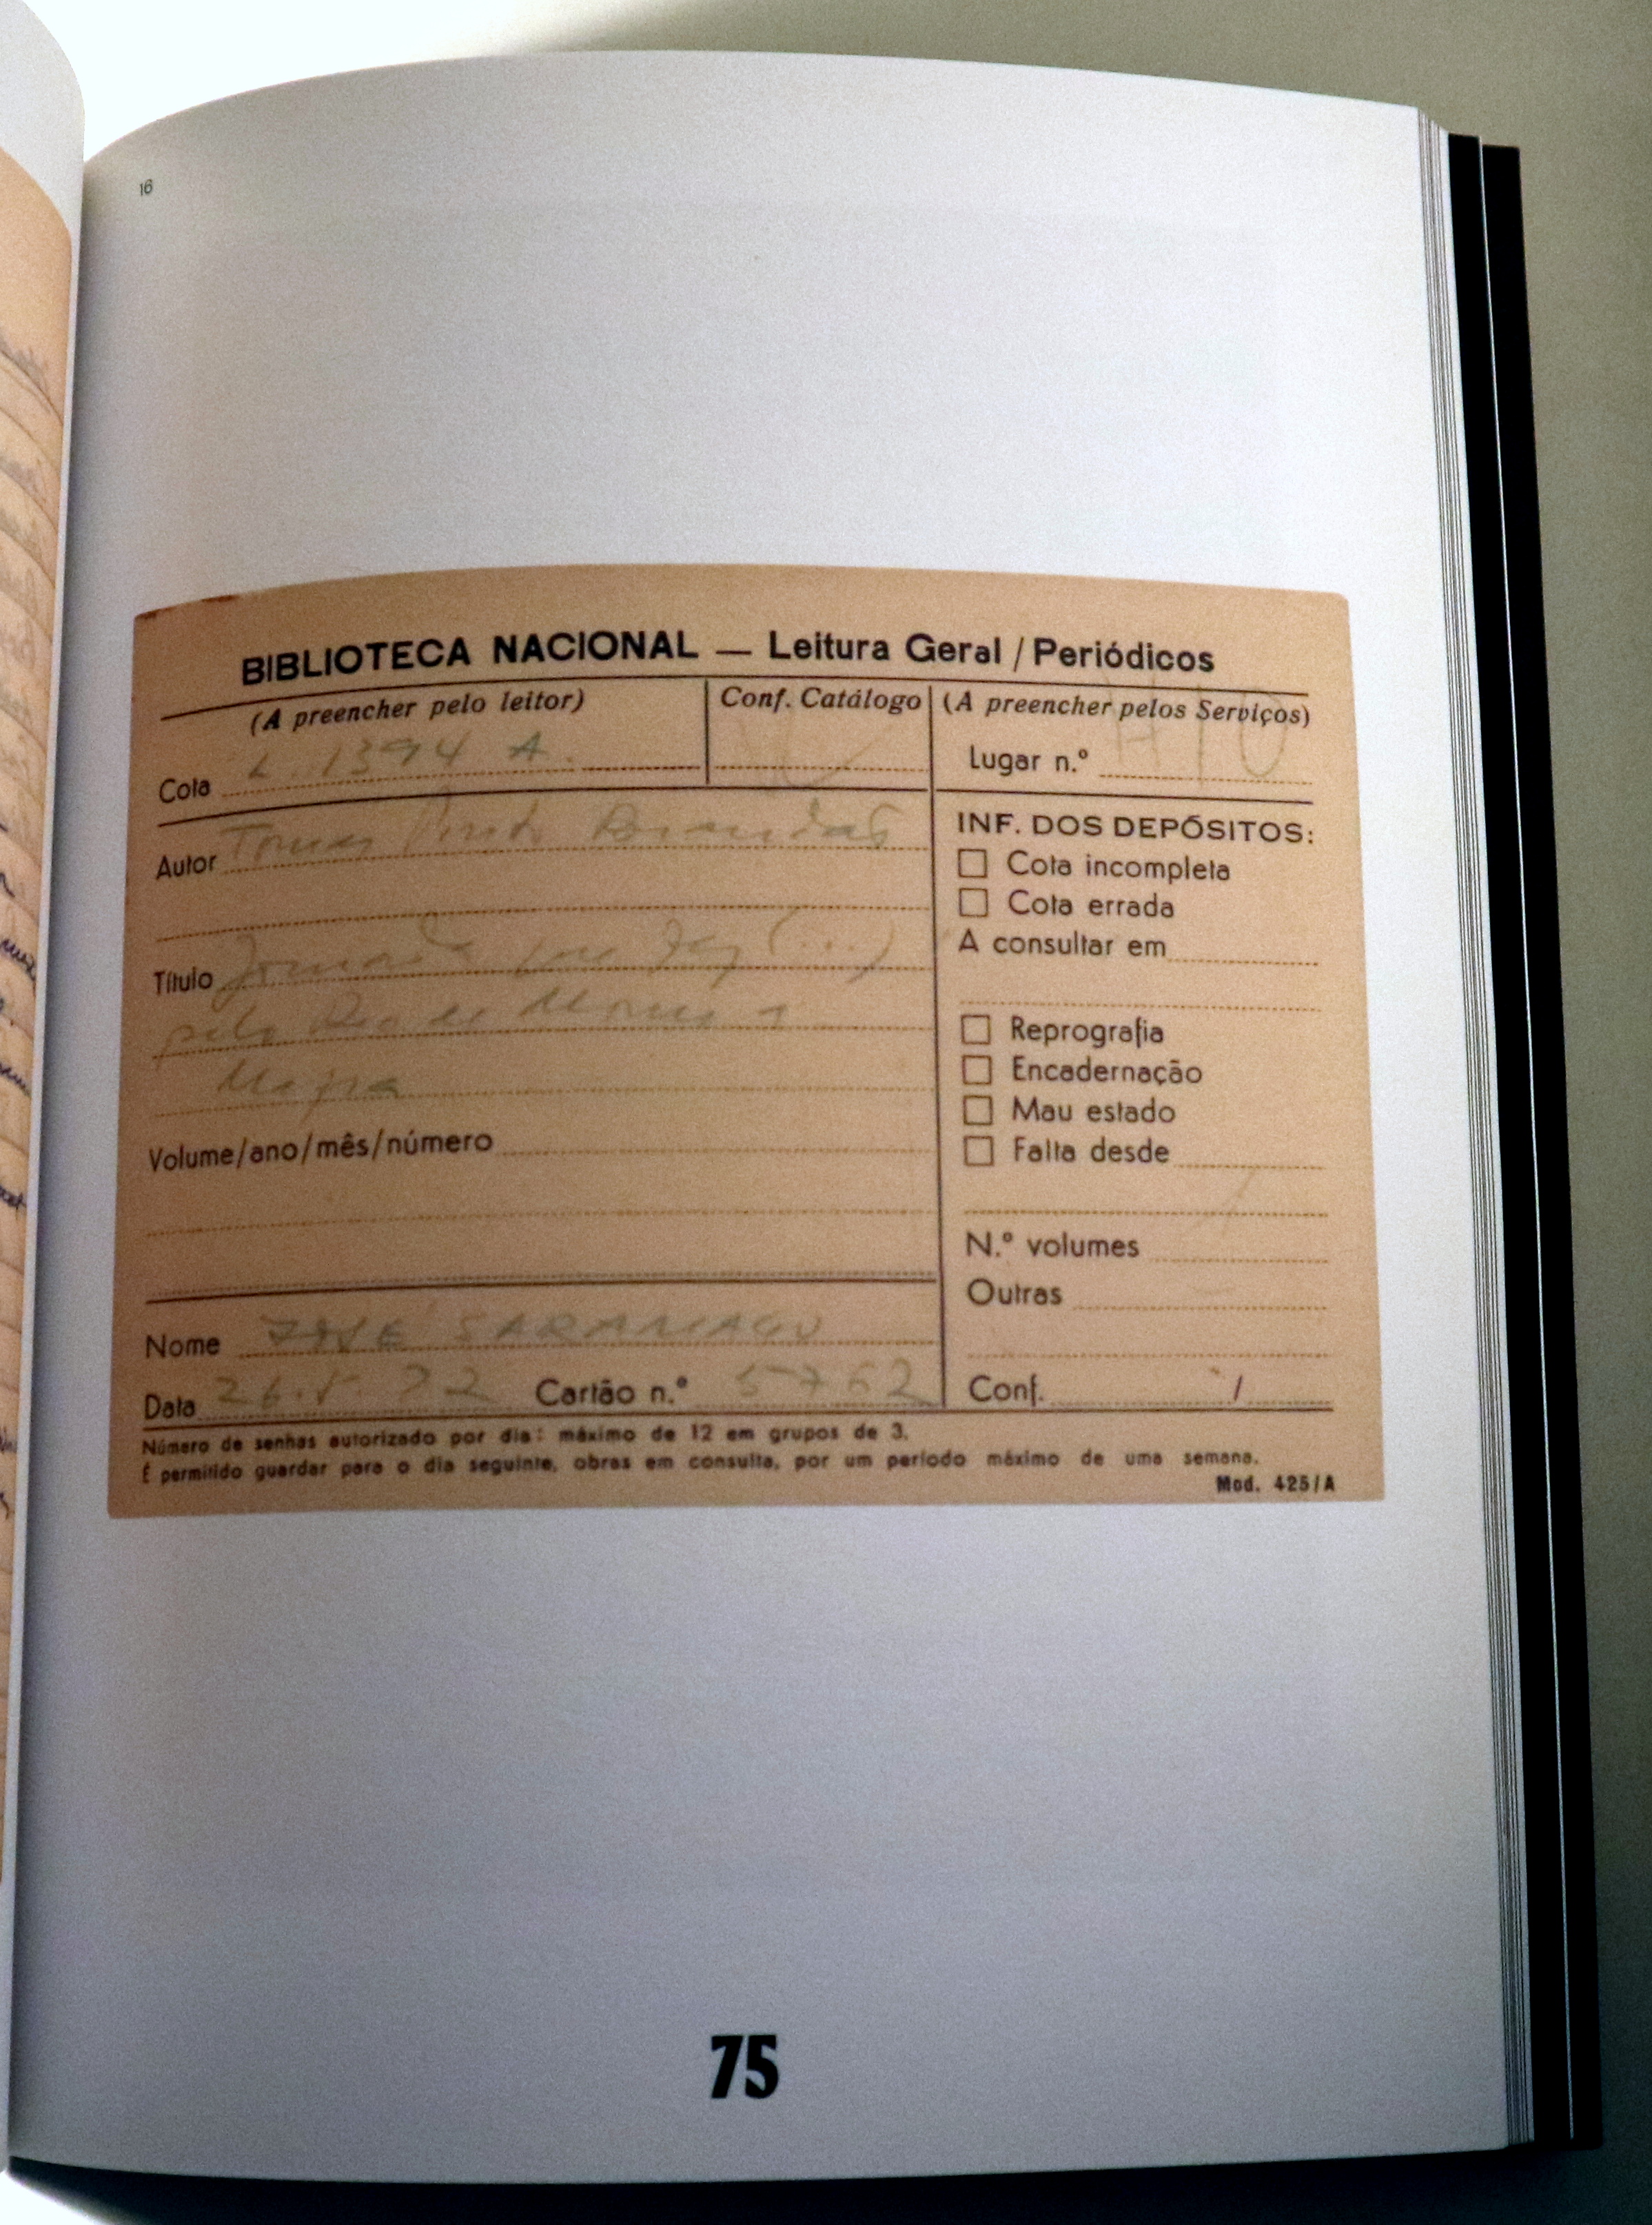 16
BIBLIOTECA NACIONAL — Leitura Geral / Periódicos
(A preencher pelo leitor)
Conf. Catálogo
(A preencher pelos Serviços)
Cota L. 1394 A.
Lugar n.º
Autor Tomas Pinto
Título Jornada que fez (...)
pelo Rio de
Mafra
Volume/ano/mês/número
INF. DOS DEPÓSITOS:
Cota incompleta
Cota errada
A consultar em
Reprografia
Encadernação
Mau estado
Falta desde
N.º volumes
Outras
Nome JOSÉ SARAMAGO
Data Cartão n.º 5762
Conf.
Número de senhas autorizado por dia: máximo de 12 em grupos de 3.
É permitido guardar para o dia seguinte, obras em consulta, por um período máximo de uma semana.
Mod. 425/A
75